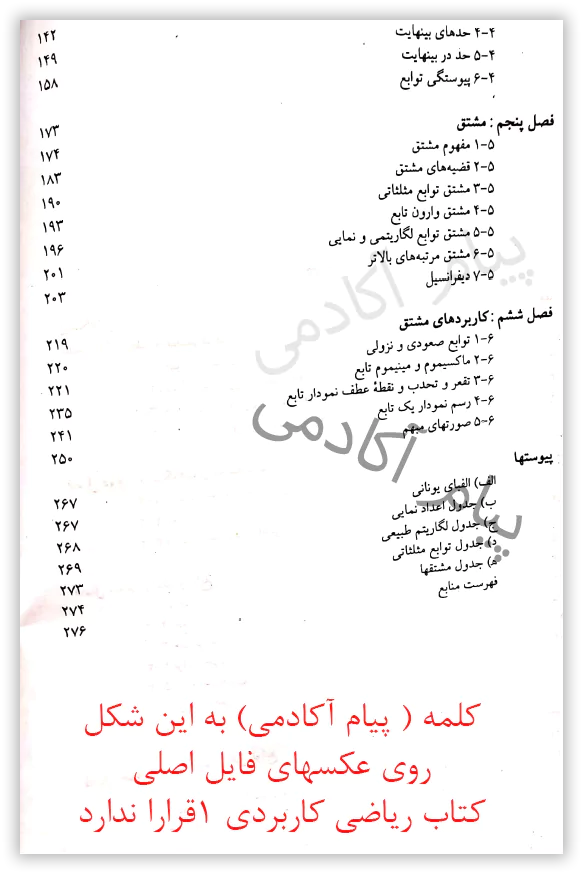 ۴-۴ حدهای بینهایت ۱۴۲
۴-۵ حد در بینهایت ۱۴۹
۴-۶ پیوستگی توابع ۱۵۸
فصل پنجم : مشتق ۱۷۳
۵-۱ مفهوم مشتق ۱۷۴
۵-۲ قضیه‌های مشتق ۱۸۳
۵-۳ مشتق توابع مثلثاتی ۱۹۰
۵-۴ مشتق وارون تابع ۱۹۳
۵-۵ مشتق توابع لگاریتمی و نمایی ۱۹۶
۵-۶ مشتق مرتبه‌های بالاتر ۲۰۱
۵-۷ دیفرانسیل ۲۰۳
فصل ششم : کاربردهای مشتق ۲۱۹
۶-۱ توابع صعودی و نزولی ۲۲۰
۶-۲ ماکسیموم و مینیموم تابع ۲۲۱
۶-۳ تقعر و تحدب و نقطهٔ عطف نمودار تابع ۲۳۵
۶-۴ رسم نمودار یک تابع ۲۴۱
۶-۵ صورتهای مبهم ۲۵۰
پیوستها ۲۶۷
الف) الفبای یونانی ۲۶۷
ب) جدول اعداد نمایی ۲۶۸
ج) جدول لگاریتم طبیعی ۲۶۹
د) جدول توابع مثلثاتی ۲۷۳
ه) جدول مشتقها ۲۷۴
فهرست منابع ۲۷۶
پیام آکادمی
پیام آکادمی
کلمه ( پیام آکادمی) به این شکل
روی عکسهای فایل اصلی
کتاب ریاضی کاربردی ۱قرارا ندارد